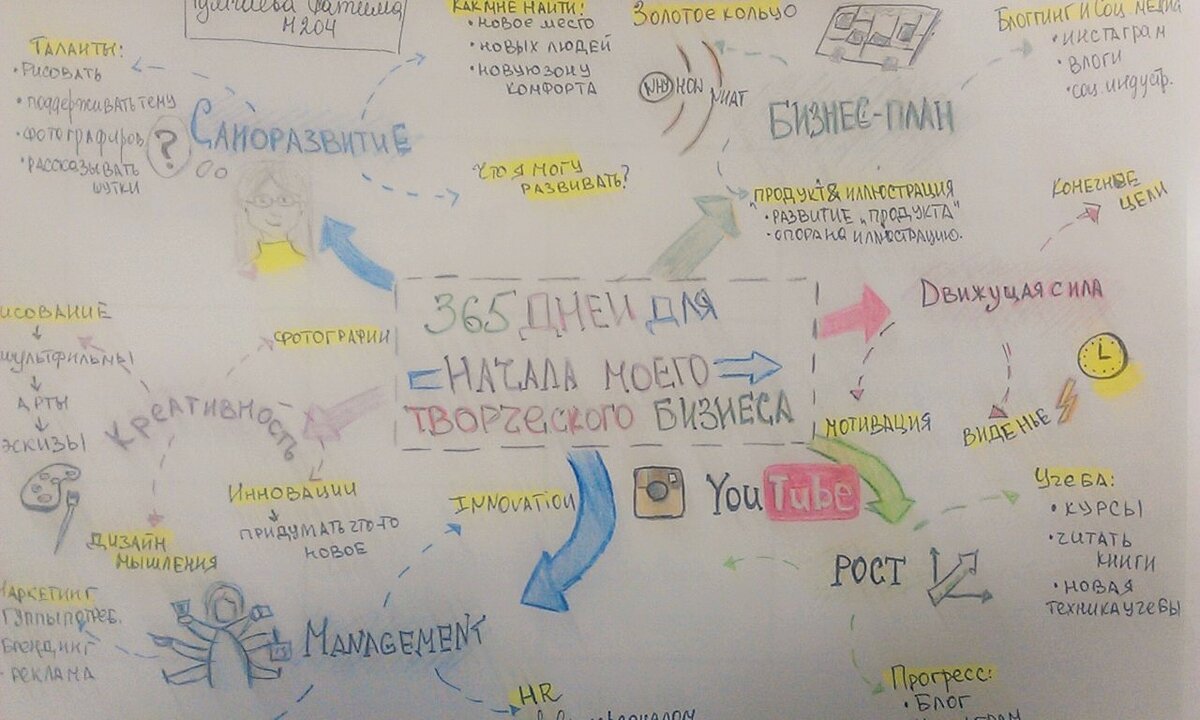 М204
Таланты:
• рисовать
• поддерживать тему
• фотографиров
• рассказывать
шутки
?
Саморазвитие
Как мне найти:
• новое место
• новых людей
• новую зону
комфорта
Что я могу
развивать?
Золотое кольцо
WHY
HOW
WHAT
Бизнес-план
Блоггинг и соц медиа
• инстаграм
• влоги
• соц. индустр.
Продукт & иллюстрация
• развитие „продукта“
• опора на иллюстрацию.
Конечные
цели
365 дней для
начала моего
творческого бизнеса
Движущая сила
мотивация
виденье
исование
мультфильмы
арты
эскизы
фотографии
Креативность
Инновации
придумать что-то
новое
Дизайн
мышления
Innovation
YouTube
Рост
Учеба:
• курсы
• читать
книги
• новая
техника учебы
Маркетинг
Брендинг
• реклама
Management
HR
Прогресс:
• Блог